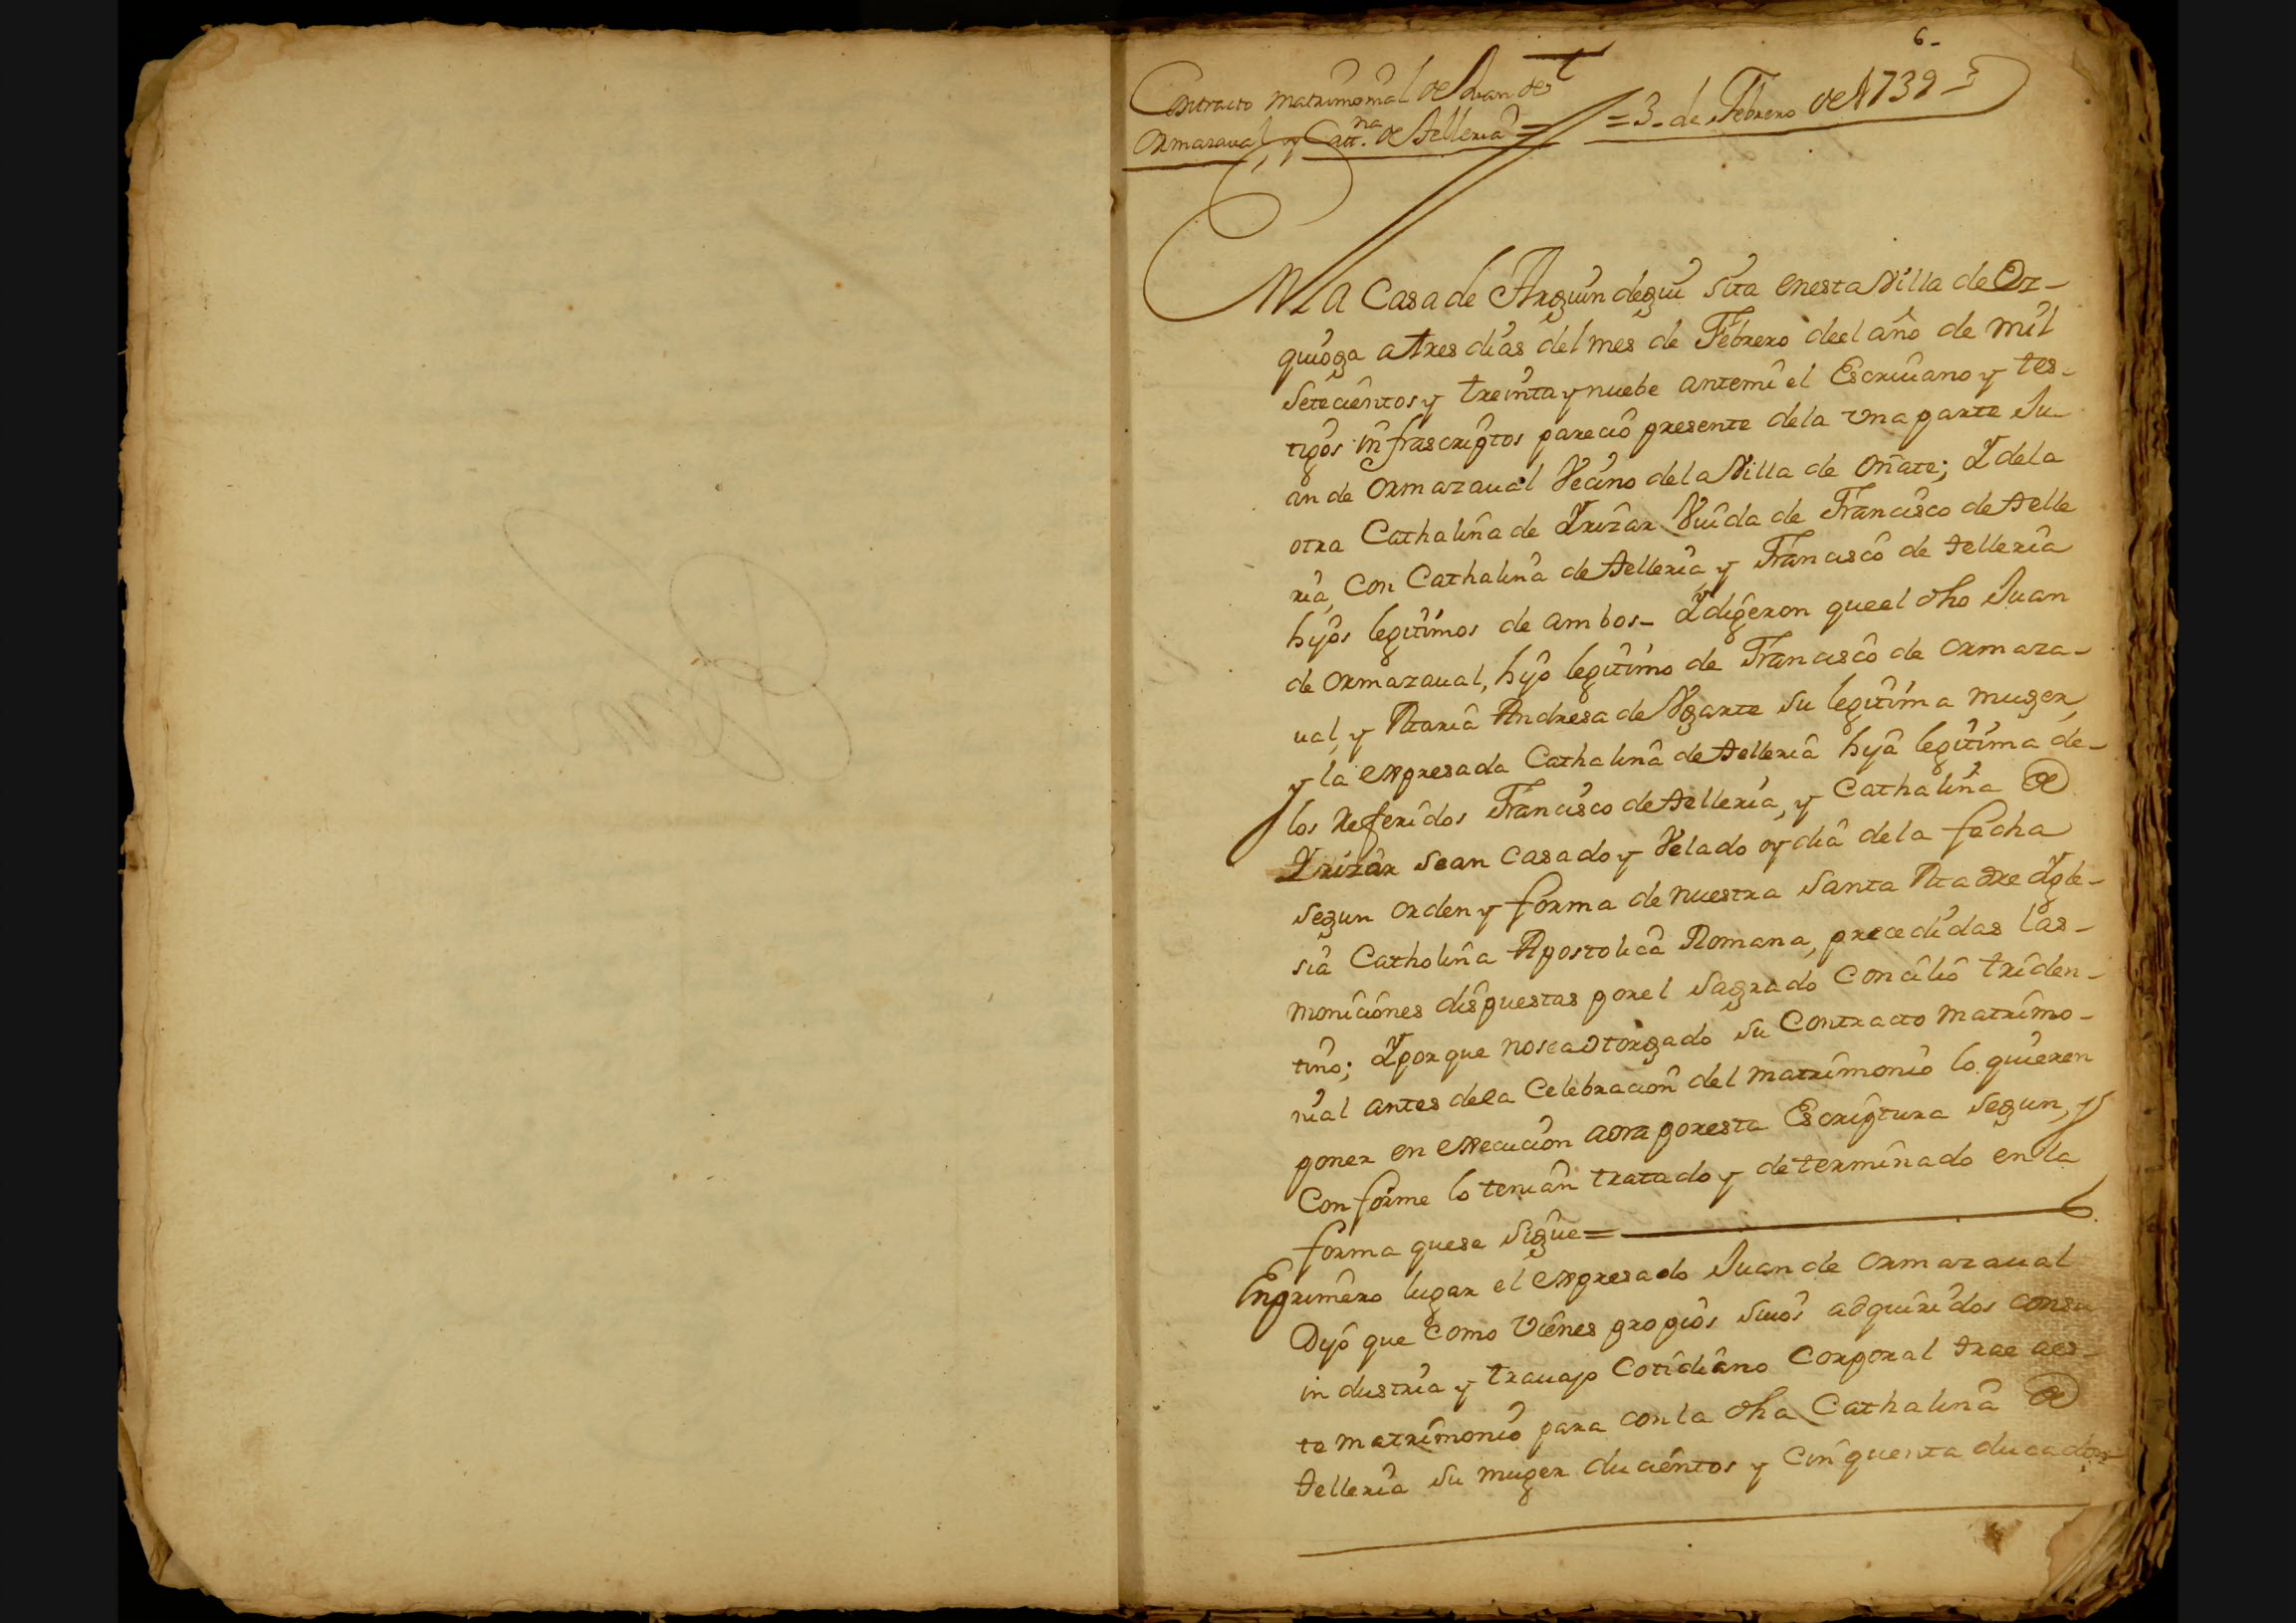 6-
Contracto matrimonial de Juan de
Ormazaual, y Catt.na de Telleria =
= 3- de Febrero de 1739
En la Casa de Arguindegui sita enesta Villa de Or-
quioga a tres dias del mes de Febrero deel año de mil
setecientos y treinta y nuebe antemi el Escriuano y tes-
tigos infrascriptos parecio presente dela vna parte Ju-
an de Ormazaual Vecino dela Villa de Oñate; Y dela
otra Cathalina de Yrizar Viuda de Francisco de Telle
ria, Con Cathalina de Telleria, y Francisco de Telleria
hijos legitimos de ambos- Y digeron queel dho Juan
de Ormazaual, hijo legitimo de Francisco de Ormaza-
ual, y Maria Andresa de Vgarte su legitima muger,
y la expresada Cathalina de Telleria hija legitima de-
los Referidos Francisco de Telleria, y Cathalina de
Yrizar sean Casado y Velado oy dia dela fecha
segun orden y forma de nuestra Santa Madre Ygle-
sia Catholina Apostolica Romana, precedidas las-
moniciones dispuestas porel Sagrado Concilio triden-
tino; Y porque nosea otorgado su Contracto matrimo-
nial antes dela Celebracion del matrimonio lo quieren
poner en execucion aora poresta Escriptura segun, y
Conforme lo tenian tratado y determinado en la
forma quese sigue=
Enprimero lugar el expresado Juan de Ormazaual
Dijo que como Vienes propios suios adquiridos consu
industria y trauajo Cotidiano Corporal trae aes-
te matrimonio para con la dha Cathalina de
Telleria su muger ducientos y cinquenta ducados